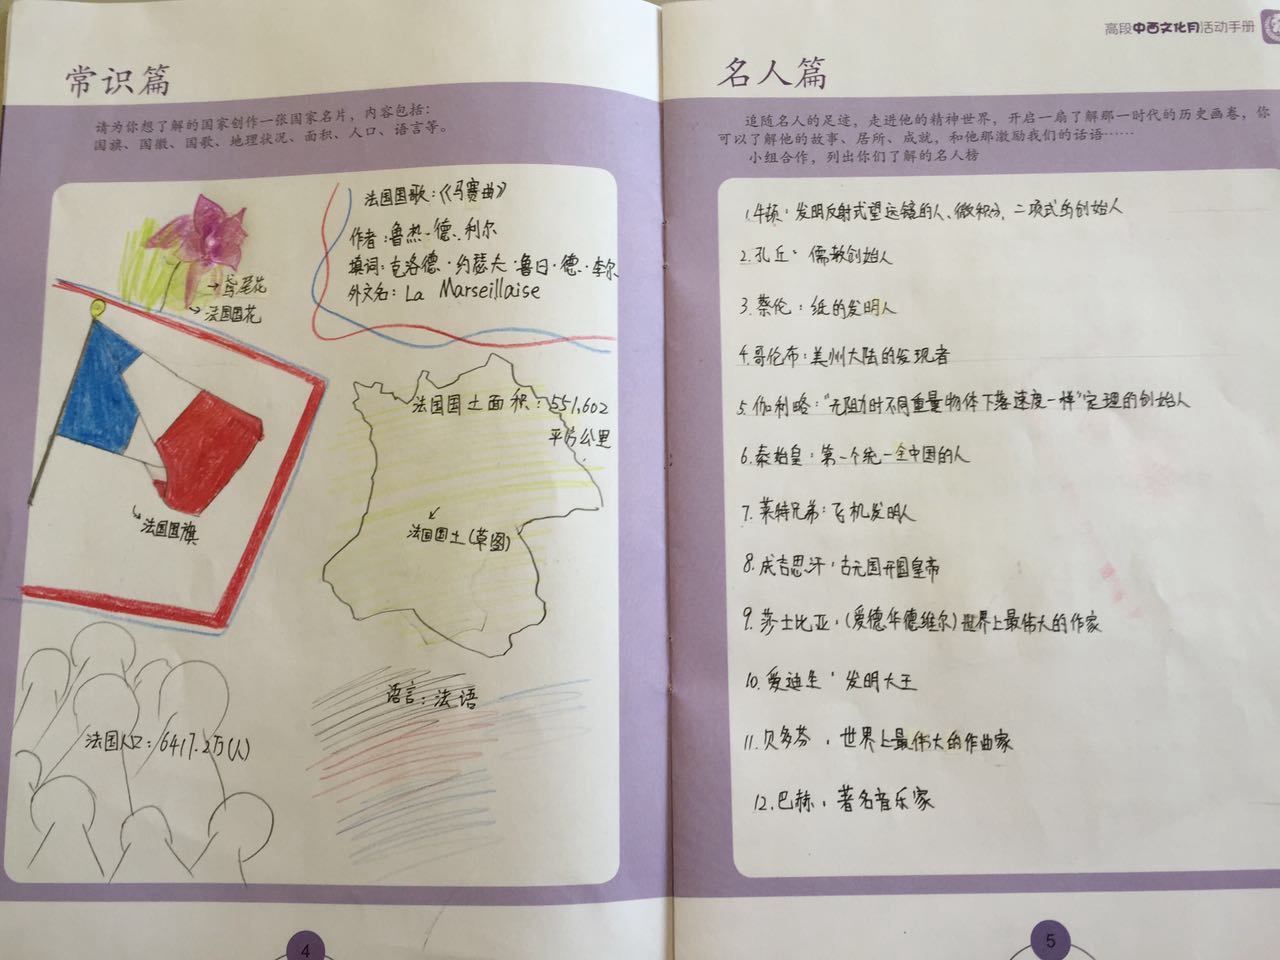 常识篇
请为你想了解的国家创作一张国家名片，内容包括：
国旗、国徽、国歌、地理状况、面积、人口、语言等。
法国国歌：《马赛曲》
作者：鲁热·德·利尔
填词：克洛德·约瑟夫·鲁日·德·李尔
外文名：La Marseillaise
→鸢尾花
→法国国花
法国国旗
法国国土面积：551,602
平方公里
法国国土(草图)
语言：法语
法国人口：6417.2万(人)
4
高段中西文化月活动手册
名人篇
追随名人的足迹，走进他的精神世界，开启一扇了解那一时代的历史画卷，你
可以了解他的故事、居所、成就，和他那激励我们的话语……
小组合作，列出你们了解的名人榜
1.牛顿：发明反射式望远镜的人、微积分，二项式的创始人
2.孔丘：儒教创始人
3.蔡伦：纸的发明人
4.哥伦布：美州大陆的发现者
5.伽利略：“无阻力时不同重量物体下落速度一样”定理的创始人
6.秦始皇：第一个统一全中国的人
7.莱特兄弟：飞机发明人
8.成吉思汗：古元国开国皇帝
9.莎士比亚：(爱德华德维尔)世界上最伟大的作家
10.爱迪生：发明大王
11.贝多芬：世界上最伟大的作曲家
12.巴赫：著名音乐家
5